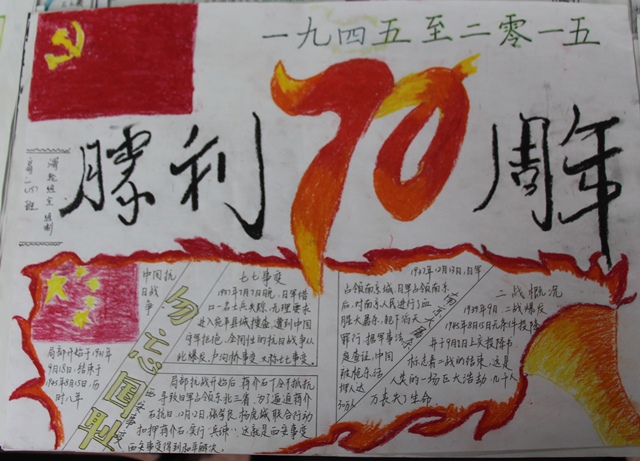 一九四五至二零一五
勝利70周年
高一(5)班
中国抗
日战
争
局部开始于1931年
9月18日.结束于
1945年8月15日.历
时14年
勿忘国耻
七七事变
1937年7月7日晚,日军借
口一名士兵失踪,无理要求
进入宛平县城搜查,遭到中国
守军拒绝.全国性的抗日战争从
此爆发.卢沟桥事变 又称七七事变.
西安事变
局部抗战开始后.蒋介石下令不抵抗
导致日军占领东北三省.为了逼迫蒋介
石抗日.12月12日.张学良 杨虎城联合行动
扣押蒋介石.实行"兵谏".这就是西安事变
西安事变得到和平解决.
南京大屠杀
1937年12月13日,日军
占领南京城.日军占领南京
后.对南京人民进行了血
腥大屠杀.犯下滔天
罪行.据军事法
庭查证.中国
二战概况
1939年9月 二战爆发
1945年8月15日无条件投降
并于9月2日上交投降书
标志着二战的结束.这是
人类的一场巨大活动.几千人
万丧失了生命